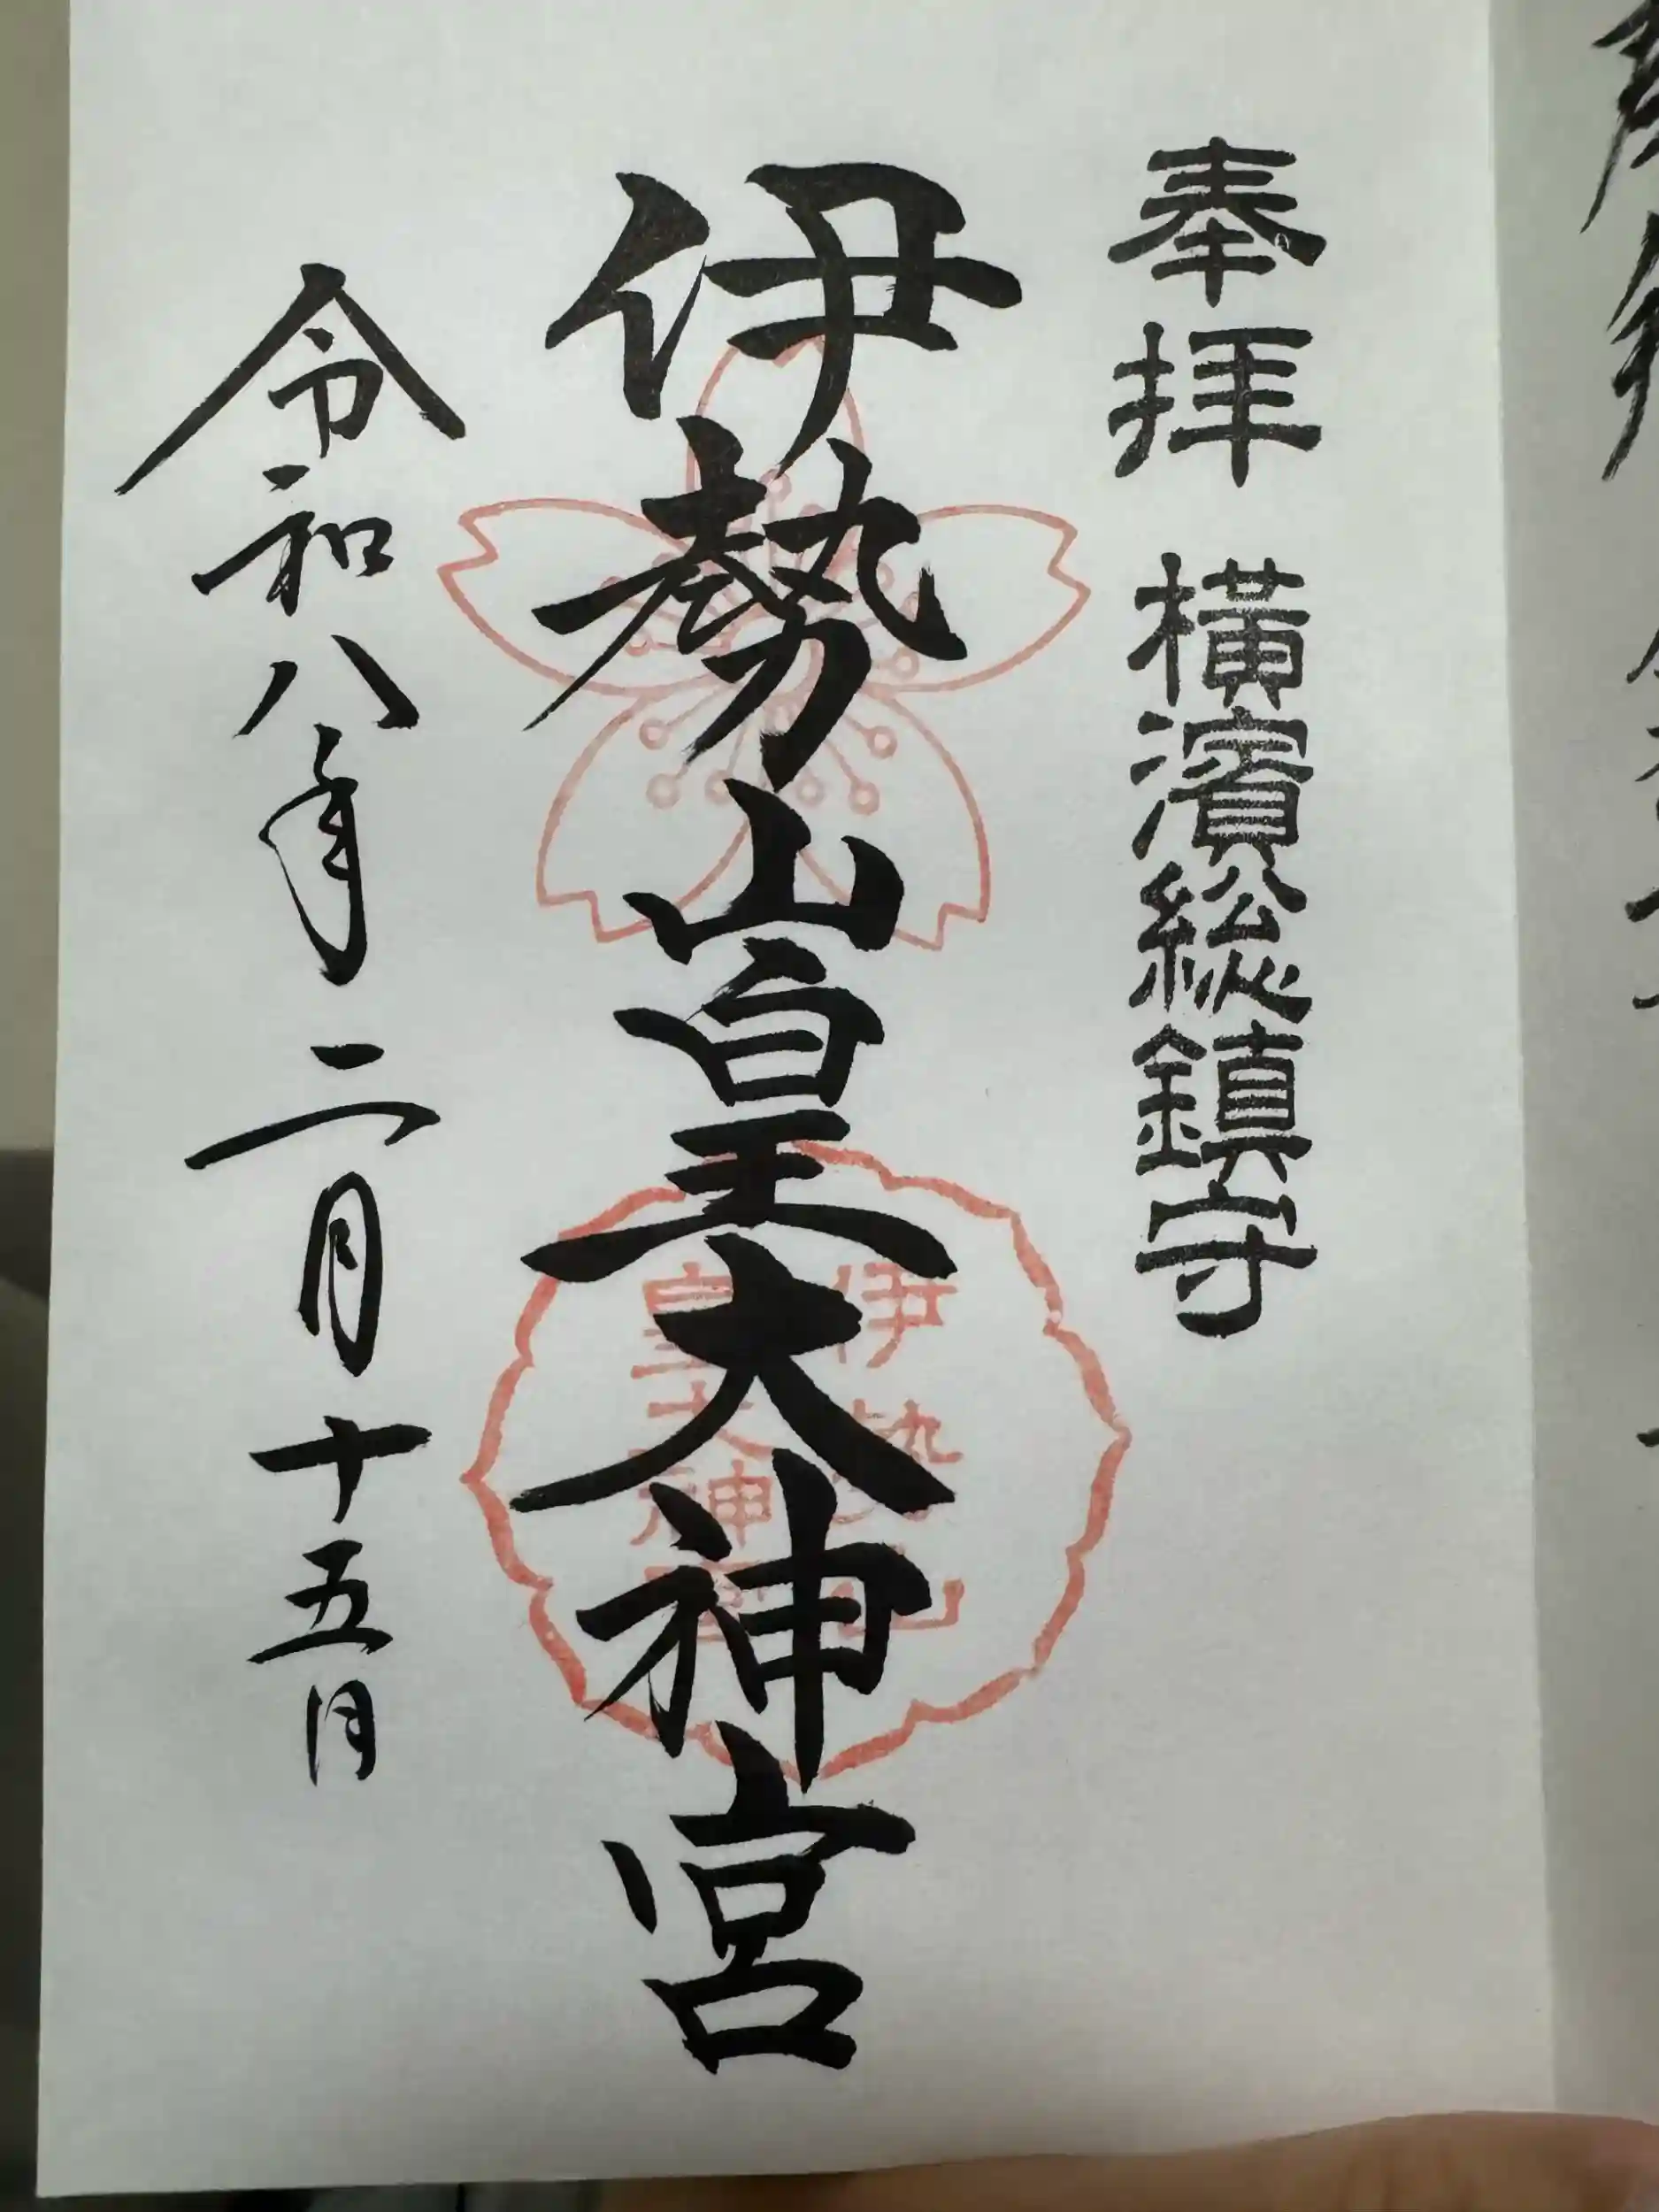 奉拝 横濱総鎮守
伊勢山皇大神宮
伊勢山
皇大神宮
令和八年二月十五日